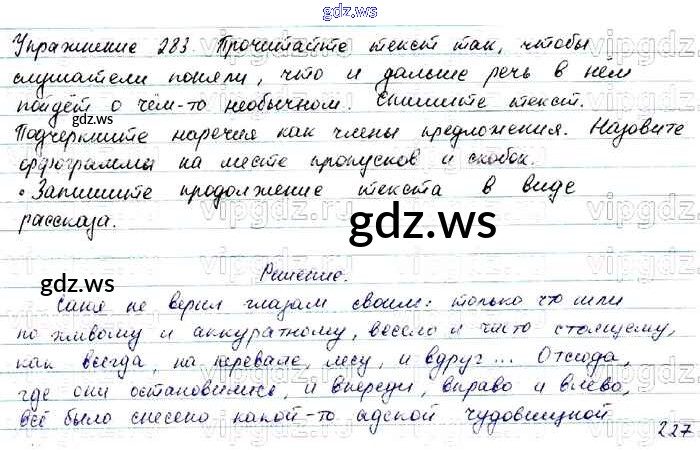 gdz.ws
Упражнение 283. Прочитайте текст так, чтобы
слушатели поняли, что и дальше речь в нём
пойдёт о чём-то необычном. Спишите текст.
Подчеркните наречия как члены предложения. Назовите
орфограммы на месте пропусков и скобок.
• Запишите продолжение текста в виде
рассказа.
gdz.ws
Решение.
gdz.ws
Саня не верил глазам своим: только что шли
по живому и аккуратному, весело и чисто стоящему,
как всегда, на перевале, лесу, и вдруг... Отсюда,
где они остановились, и впереди, вправо и влево,
всё было снесено какой-то адской чудовищной
227